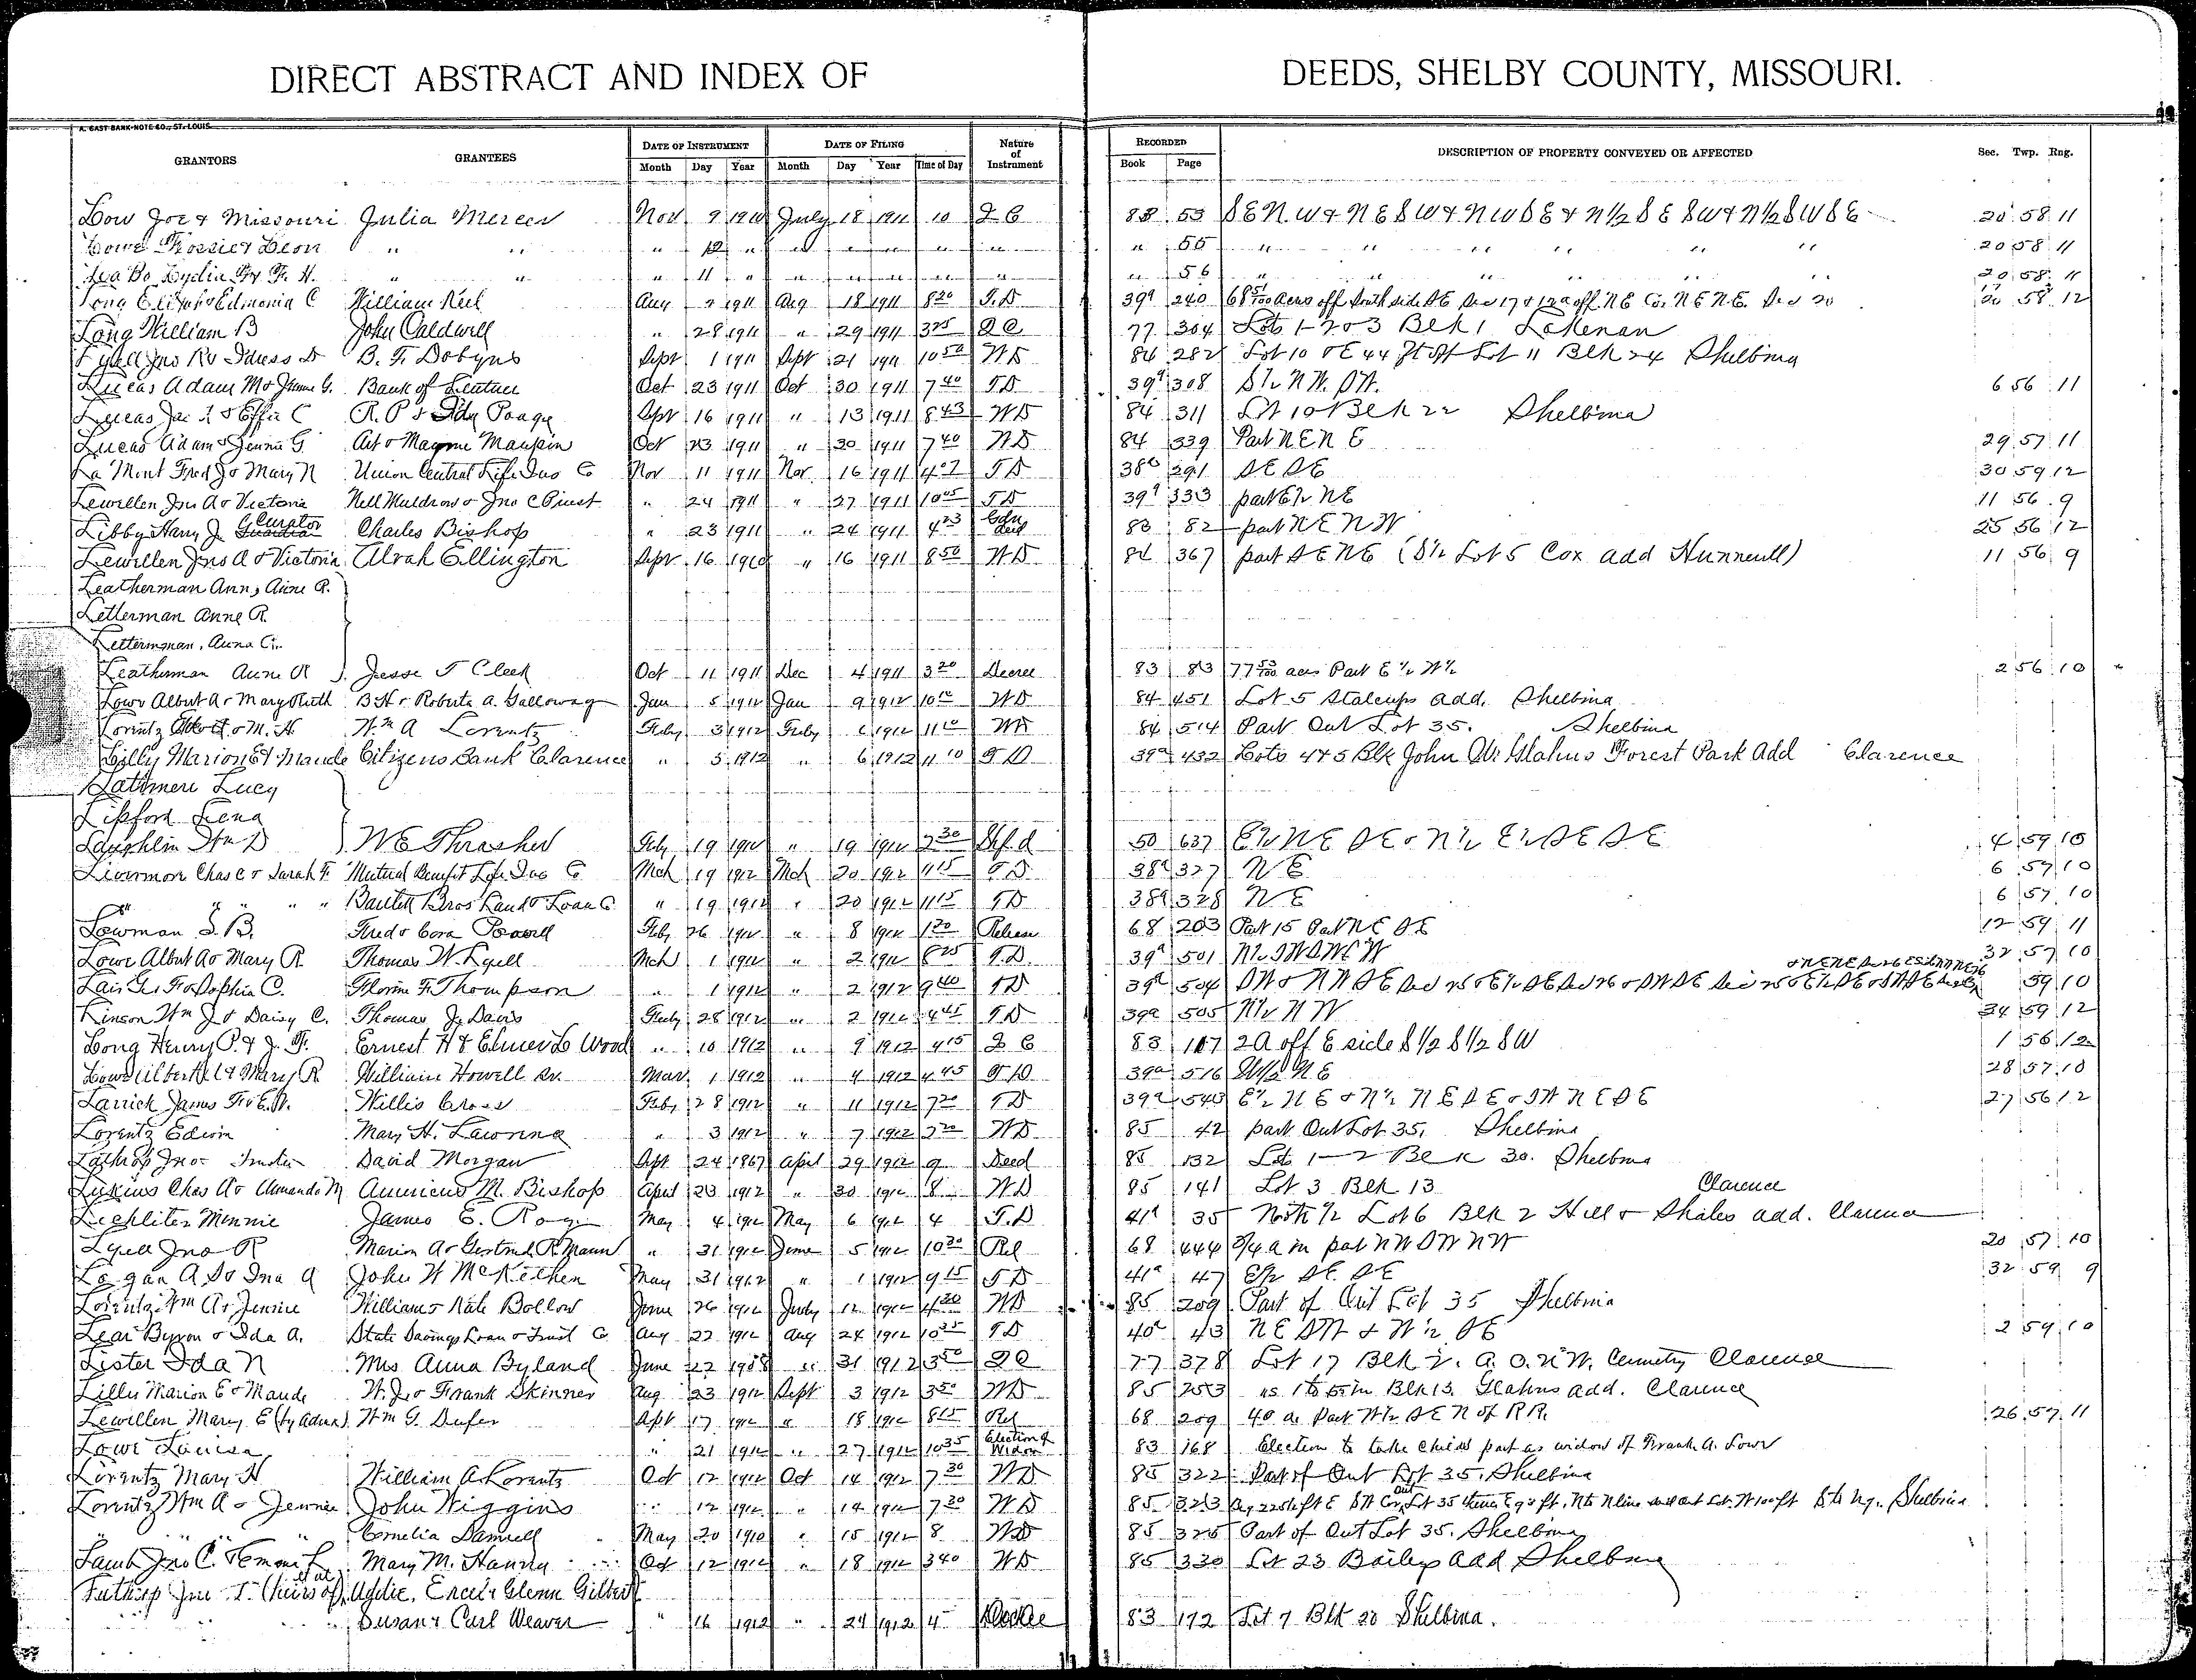 DIRECT ABSTRACT AND INDEX OF DEEDS, SHELBY COUNTY, MISSOURI.
A. GAST BANK-NOTE CO., ST. LOUIS
GRANTORS GRANTEES DATE OF INSTRUMENT DATE OF FILING Nature of Instrument RECORDED DESCRIPTION OF PROPERTY CONVEYED OR AFFECTED Sec. Twp. Rng.
Month Day Year Month Day Year Time of Day Book Page
Low Joe & Missouri Julia Mercer Nov 9 1910 July 18 1911 10 83 53 S E N W & N E S W & N W S E & N 1/2 S E S W & N 1/2 S W S E 20 58 11
Lowe Leon " " " 12 " " 55 " " " " 20 58 11
Lydia F. H. " " " 11 " " 56 " " " " 20 58 11
Long & Edmonia C William Keel Aug 1911 Aug 18 1911 8 20 T.D 39a 240 acres off South side SE Sec 17 & off N E Cor. N E N E Sec 20 58 12
Long William B John Caldwell " 28 1911 " 29 1911 Q C 77 304 Lots 1-2 & 3 Blk 1 Lakenan
Lyell Jno R & B. F. Dobyns Sept 1 1911 Sept 21 1911 10 50 W D 84 282 Lot 10 & E 44 ft of Lot 11 Blk 24 Shelbina
Lucas Adam M & Jennie G. Bank of Oct 23 1911 Oct 30 1911 7 40 T.D 39a 308 S 1/2 N W. 6 56 11
Lucas & Effie C R. P & Ida Poage Sept 16 1911 " 13 1911 8 43 W D 84 311 Lot 10 Blk 22 Shelbina
Lucas Adam & Jennie G. Art & Mayme Maupin Oct 23 1911 " 30 1911 7 40 W D 84 339 Part N E N E 29 57 11
La Mont Fred J & Mary N Union Central Life Ins Co Nov 11 1911 Nov 16 1911 T D 38c 291 S E S E 30 59 12
Lewellen Jno A & Victoria Nell Muldrow & Jno C " 24 1911 " 27 1911 10 05 T D 39a 333 part E 1/2 N E 11 56 9
Libby Harry J Curator Guardian Charles Bishop " 23 1911 " 24 1911 4 23 83 82 part N E N W 25 56 12
Lewellen Jno A & Victoria Alvah Ellington Sept 16 1910 " 16 1911 8 50 W D 84 367 part S E N E (S 1/2 Lot 5 Cox add Hunnewell) 11 56 9
Leatherman Ann, Anne R.
Letterman Anne R.
Letterman, Anna C.
Leatherman Anne R Jesse T Cleek Oct 11 1911 Dec 4 1911 3 20 Decree 83 83 77 acres Part E 1/2 W 1/2 2 56 10
Lowe Albert A & Mary Ruth B. H & Roberta A. Galloway Jan 5 1912 Jan 9 1912 10 W D 84 451 Lot 5 Stalcups add. Shelbina
Lorentz & M. H. Wm A Lorentz Feby 3 1912 Feby 6 1912 11 W D 84 514 Part Out Lot 35. Shelbina
Lilly Marion E & Maude Citizens Bank Clarence " 5 1912 " 6 1912 11 10 T D 39a 432 Lots 4 & 5 Blk John Glahns Forest Park Add Clarence
Lattimere Lucy
Lipford Lena
Laughlin Wm D W E Thrasher Feby 19 1912 " 19 1912 2 30 50 637 E 1/2 N E S E & N 1/2 E 1/2 S E S E 4 59 10
Livermore Chas C & Sarah F. Mutual Benefit Life Ins Co Mch 19 1912 Mch 20 1912 11 15 T D 38a 327 N E 6 57 10
" " " " Bartlett Bros Land & Loan Co " 19 1912 " 20 1912 11 15 T D 38a 328 N E 6 57 10
Lowman S. B. Fred & Cora Powell Feby 26 1912 " 8 1912 1 20 Release 68 203 Part 15 Part N E S E 12 59 11
Lowe Albert A & Mary R. Thomas W. Lyell Mch 1 1912 " 2 1912 8 25 T.D. 39a 501 N 1/2 S W & N W 32 57 10
Lair & Sophia C. Florine F. Thompson " 1 1912 " 2 1912 9 40 T D 39a 504 59 10
Linson Wm J & Daisy C. Thomas J. Davis Feby 28 1912 " 2 1912 4 45 T.D 39a 505 N 1/2 N W 34 59 12
Long Henry P. & J. F. Ernest H & Elmer L Wood " 10 1912 " 9 1912 4 15 83 107 2 A off E side S 1/2 S 1/2 S W 1 56 12
Lowe Albert A & Mary R William Howell Sr. Mar. 1 1912 " 4 1912 4 45 T D 39a 516 W 1/2 N E 28 57 10
Larrick James F & E. N. Willis Cross Feby 28 1912 " 11 1912 7 20 T D 39a 543 E 1/2 N E & N 1/2 N E S E & S W N E S E 27 56 12
Lorentz Edwin Mary H. " 3 1912 " 7 1912 W D 85 42 part Out Lot 35. Shelbina
Lathrop Jno Trustee David Morgan Sept 24 1867 April 29 1912 9 Deed 85 132 Lots 1-2 Blk 30. Shelbina
Lukins Chas A & Amanda M Americus M. Bishop April 23 1912 " 30 1912 8 W D 85 141 Lot 3 Blk 13 Clarence
Lechliter Minnie James E. May 4 1912 May 6 1912 4 T.D 41a 35 North 1/2 Lot 6 Blk 2 Hill & Shales add. Clarence
Lyell Jno R Marion A & Gertrude R. Mann " 31 1912 June 5 1912 10 30 Rel 68 444 3/4 a in part N W S W N W 20 57 10
Logan A. S & Ina A John W McKethen May 31 1912 " 1 1912 9 15 T D 41a 47 E 1/2 S E S E 32 59 9
Lorentz Wm A & Jennie William & Kate Bollow June 26 1912 July 12 1912 4 30 W D 85 209 Part of Out Lot 35 Shelbina
Lear Byron & Ida A. State Savings Loan & Trust Co Aug 22 1912 Aug 24 1912 10 35 T D 40a 43 N E S W & W 1/2 S E 2 59 10
Lister Ida N Mrs Anna Byland June 22 1908 " 31 1912 3 50 Q C 77 378 Lot 17 Blk 2. A. O. U. W. Cemetery Clarence
Lilly Marion E & Maude W. J. & Frank Skinner Aug 23 1912 Sept 3 1912 3 50 W D 85 253 1 to 5 in Blk 13 Glahns add. Clarence
Lewellen Mary E (by Admr) Wm G. Dufer Sept 17 1912 " 18 1912 8 15 Rel 68 209 40 a Part W 1/2 S E N of R R. 26 57 11
Lowe Louisa " 21 1912 " 27 1912 10 35 Election of Widow 83 168 Election to take childs part as widow of Frank A. Lowe
Lorentz Mary H William A Lorentz Oct 12 1912 Oct 14 1912 7 30 W D 85 322 Part of Out Lot 35, Shelbina
Lorentz Wm A & Jennie John Wiggins " 12 1912 " 14 1912 7 30 W D 85 323 Lot 35 Shelbina
" " " " Cornelia Damrell May 20 1910 " 15 1912 8 W D 85 325 Part of Out Lot 35. Shelbina
Lamb Jno C. & Mary M. Hanna Oct 12 1912 " 18 1912 3 40 W D 85 330 Lot 23 Bailey add Shelbina
Jno T. (heirs of) et al Addie, Encel & Glenn Gilbert
Susan & Carl Weaver " 16 1912 " 24 1912 4 Decree 83 172 Lot 7 Blk 20 Shelbina.